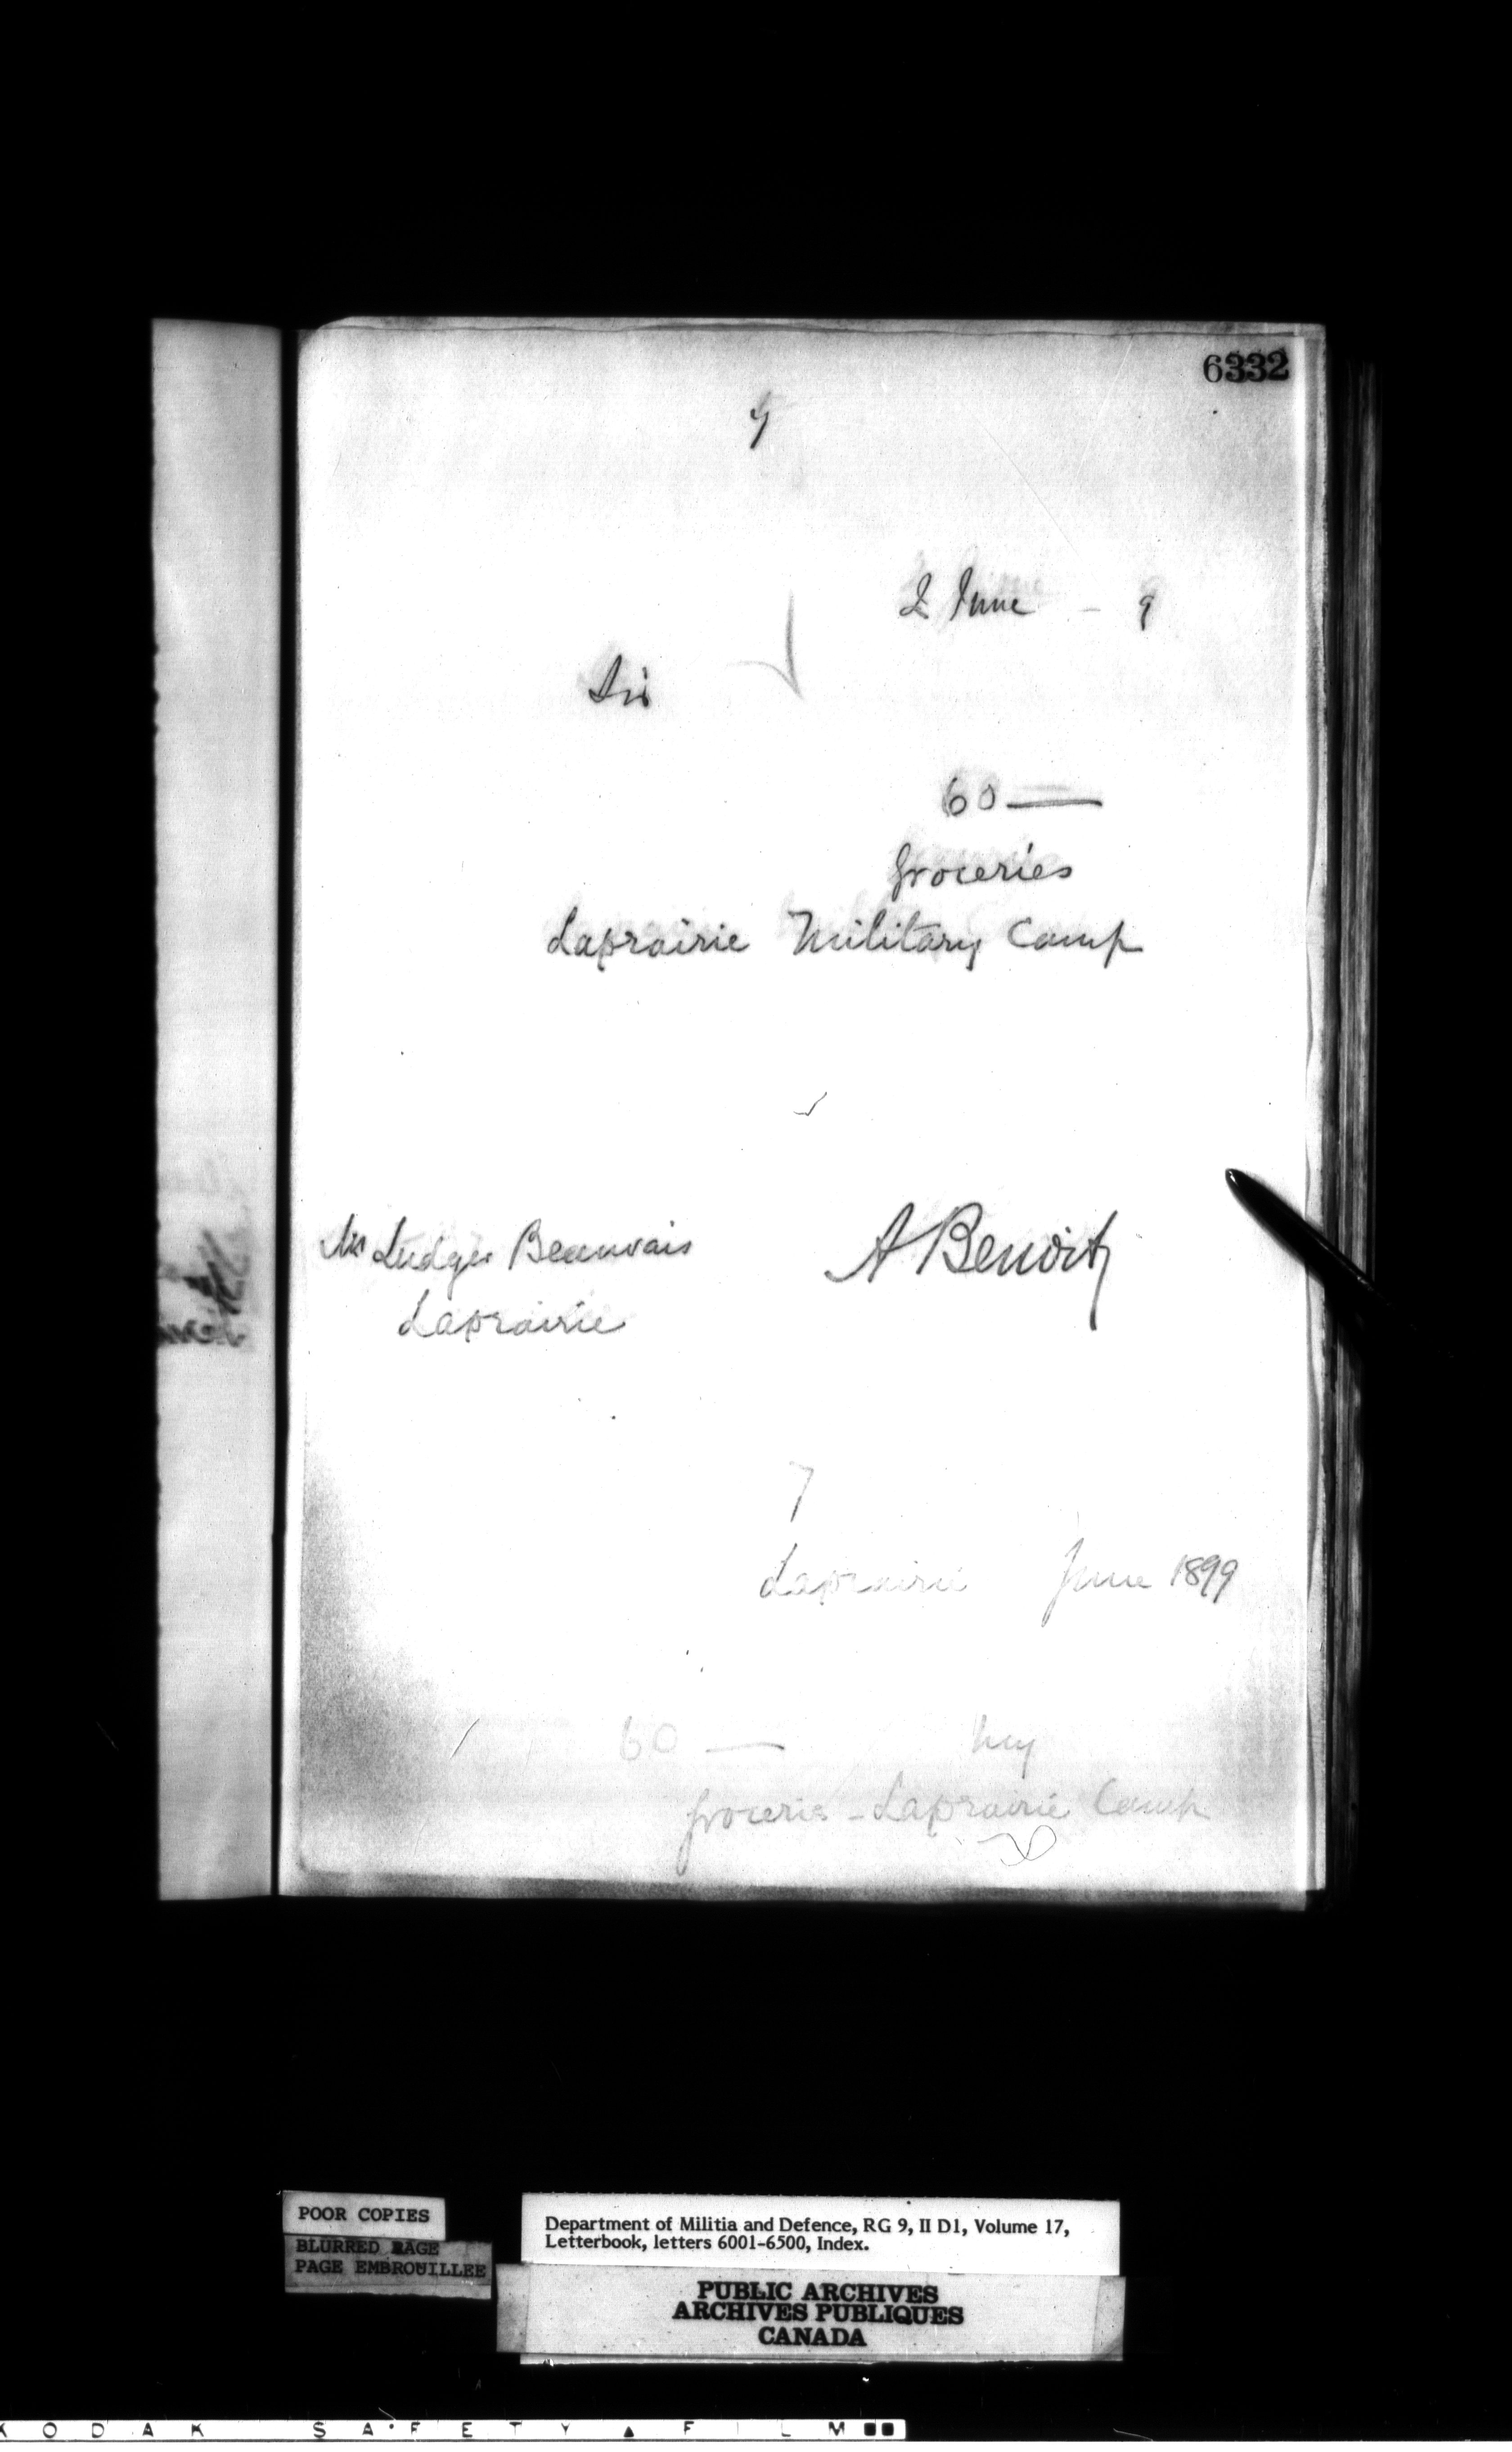 6332
2 June - 9
Sir
60 —
Groceries
Laprairie Military Camp
Mr Ludger Beauvais
A Benoit
Laprairie
7
Laprairie June 1899
60 — my
Groceries - Laprairie Camp
POOR COPIES
BLURRED PAGE
PAGE EMBROUILLEE
Department of Militia and Defence, RG 9, II D1, Volume 17,
Letterbook, letters 6001-6500, Index.
PUBLIC ARCHIVES
ARCHIVES PUBLIQUES
CANADA
KODAK SAFETY FILM